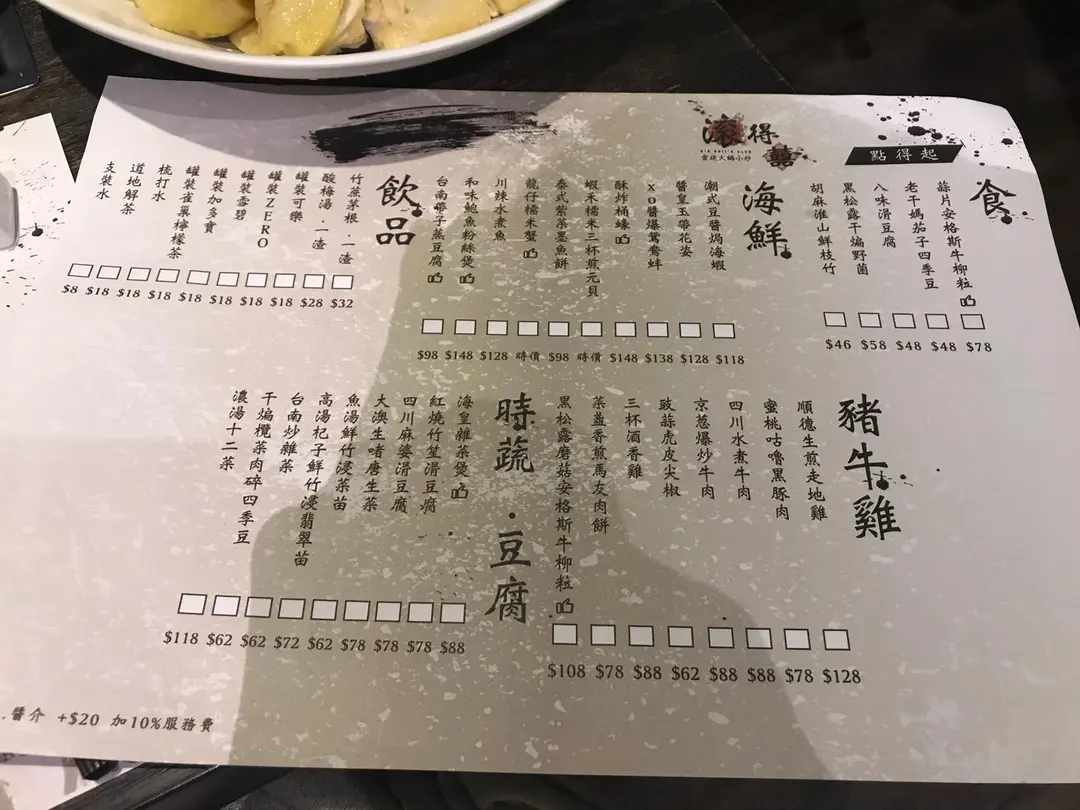 滾得囍
富珧火鍋小炒
點得起
食
蒜片安格斯牛柳粒
老干媽茄子四季豆
八味滑豆腐
黑松露干煸野菌
胡麻淮山鮮枝竹
$46 $58 $48 $48 $78
海鮮
潮式豆醬焗海蝦
醬皇玉帶花姿
XO醬爆鴛鴦蚌
酥炸桶蠔
蝦禾糯米三杯煎元貝
泰式紫菜墨魚餅
龍仔糯米蟹
川辣水煮魚
和味鮑魚粉絲煲
台南帶子蒸豆腐
$98 $148 $128 時價 $98 時價 $148 $138 $128 $118
飲品
竹蔗茅根．一渣
酸梅湯 一渣
罐裝可樂
罐裝ZERO
罐裝雪碧
罐裝加多寶
罐裝雀巢檸檬茶
梳打水
道地解茶
支裝水
$8 $18 $18 $18 $18 $18 $18 $18 $28 $32
豬牛雞
順德生煎走地雞
蜜桃咕嚕黑豚肉
四川水煮牛肉
京葱爆炒牛肉
豉蒜虎皮尖椒
三杯酒香雞
菜盞香煎馬友肉餅
黑松露磨菇安格斯牛柳粒
$108 $78 $88 $62 $88 $88 $78 $128
時蔬．豆腐
海皇雜菜煲
紅燒竹笙滑豆腐
四川麻婆滑豆腐
大澳生啫唐生菜
魚湯鮮竹浸菜苗
高湯杞子鮮竹浸翡翠苗
台南炒雜菜
干煸欖菜肉碎四季豆
濃湯十二菜
$118 $62 $62 $72 $62 $78 $78 $78 $88
醬介 +$20 加10%服務費